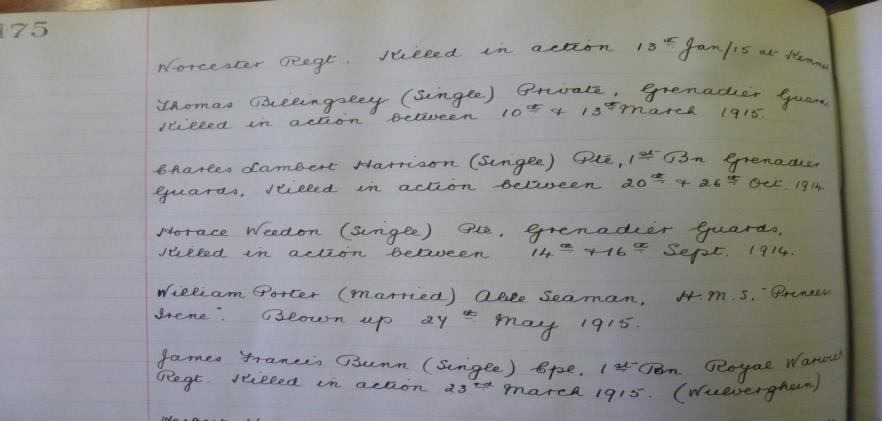 175
Worcester Regt. Killed in action 13th Jan/15 at
Thomas Billingsley (Single) Private, Grenadier Guards
Killed in action between 10th & 13th March 1915.
Charles Lambert Harrison (Single) Pte, 1st Bn Grenadier
Guards, Killed in action between 20th & 26th Oct. 1914
Horace Weedon (Single) Pte, Grenadier Guards,
Killed in action between 14th & 16th Sept. 1914.
William Porter (Married) Able Seaman, H.M.S. "Princess
Irene". Blown up 27th May 1915.
James Francis Bunn (Single) Cpl, 1st Bn Royal Warwick
Regt. Killed in action 23rd March 1915. (Wulverghem)